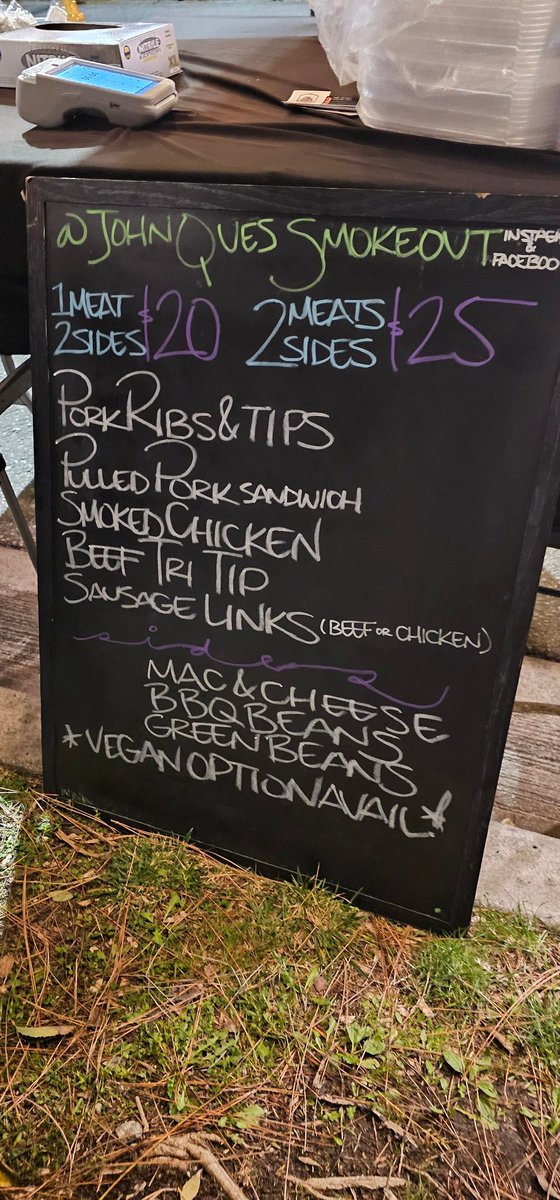 NITRILE
XL
@JOHNQUES SMOKEOUT
INSTAG
&
FACEBOO
1 MEAT
2 SIDES
$20
2 MEATS
2 SIDES
$25
PORK RIBS & TIPS
PULLED PORK SANDWICH
SMOKED CHICKEN
BEEF TRI TIP
SAUSAGE LINKS (BEEF OR CHICKEN)
sides
MAC & CHEESE
BBQ BEANS
GREEN BEANS
*VEGAN OPTION AVAIL*